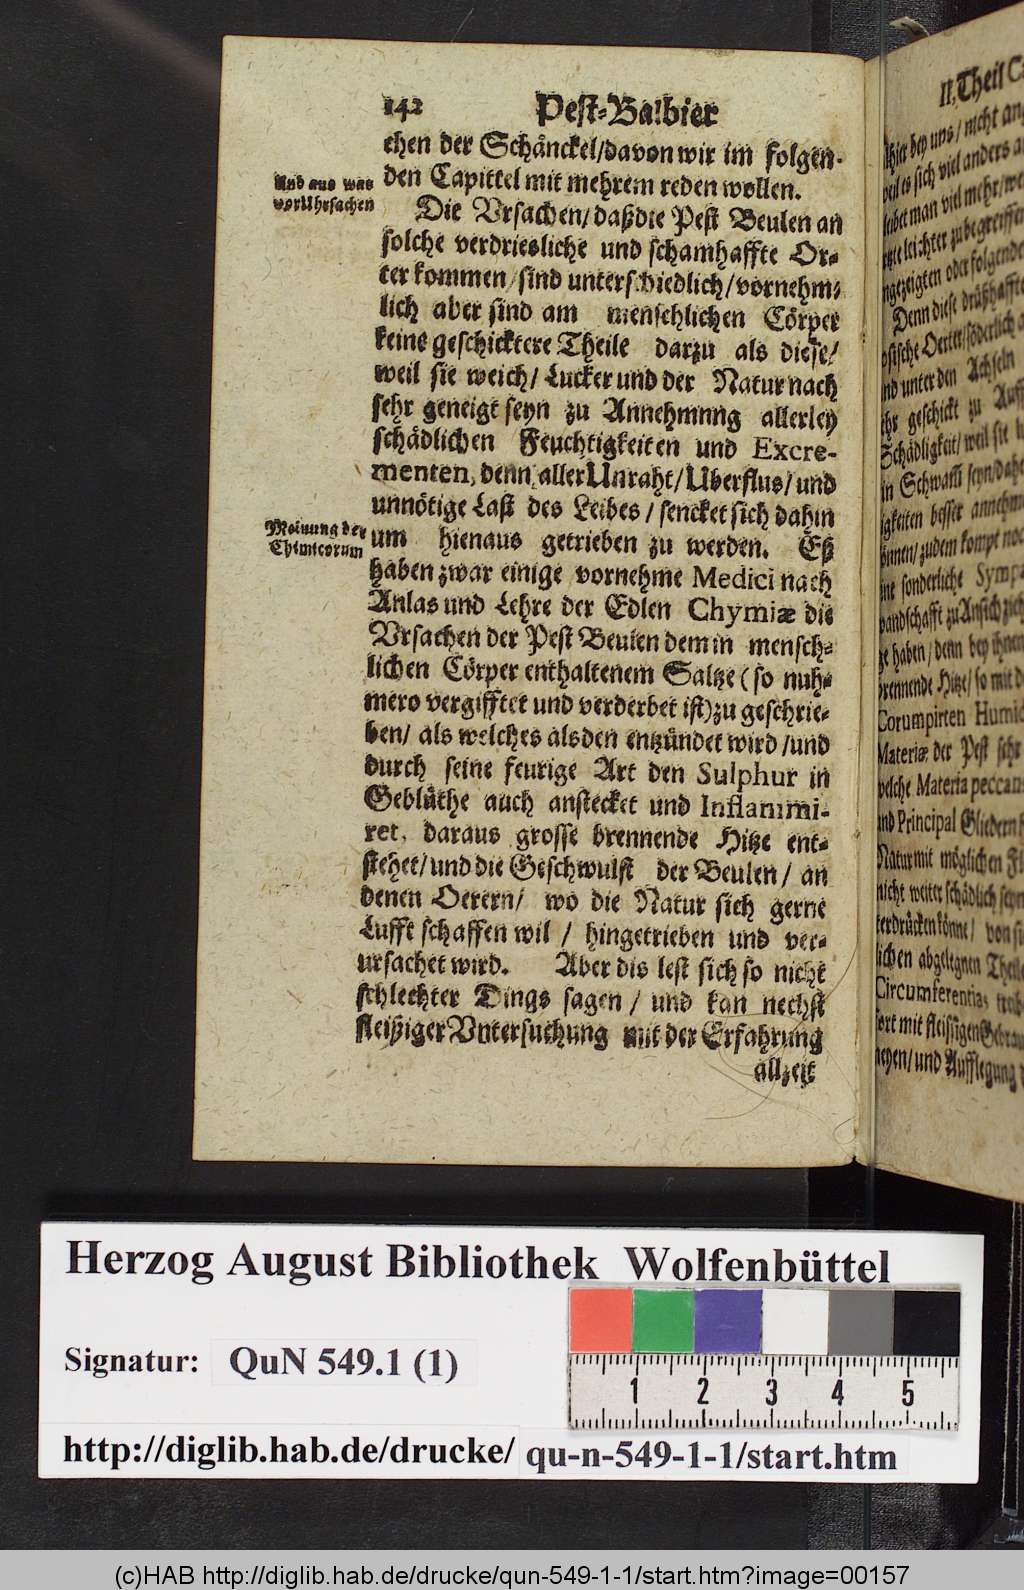 142 Pest-Balbier
chen der Schänckel/davon wir im folgen-
den Capittel mit mehrem reden wollen.
Und aus was
vor Uhrsachen
Die Vrsachen/daß die Pest Beulen an
solche verdriesliche und schamhaffte Or-
ter kommen/sind unterschiedlich/vornehm-
lich aber sind am menschlichen Cörper
keine geschicktere Theile darzu als diese/
weil sie weich/Lucker und der Natur nach
sehr geneigt seyn zu Annehmnng allerley
schädlichen Feuchtigkeiten und Excre-
menten, denn aller Unraht/Uberflus/und
unnötige Last des Leibes/sencket sich dahin
um hienaus getrieben zu werden. Eß
Meinung der
Chimicorum
haben zwar einige vornehme Medici nach
Anlas und Lehre der Edlen Chymiæ die
Vrsachen der Pest Beulen dem in mensch-
lichen Cörper enthaltenem Saltze (so nuh-
mero vergifftet und verderbet ist) zu geschrie-
ben/als welches alsden entzündet wird/und
durch seine feurige Art den Sulphur in
Geblüthe auch anstecket und Inflammi-
ret, daraus grosse brennende Hitze ent-
stehet/und die Geschwulst der Beulen/an
denen Oerern/wo die Natur sich gerne
Lufft schaffen wil/hingetrieben und ver-
ursachet wird. Aber dis lest sich so nicht
schlechter Dings sagen/und kan nechst
fleißiger Vntersuchung mit der Erfahrung
allzeit
II. Theil
bey uns/nicht
sich viel anders
man viel mehr
leichter zu begreiffen
oder folgende
Denn diese drüßhaffte
und unter den Achseln
geschickt zu
Schädligkeit/weil sie
in Schwam seyn/dahe
besser annehm
können/zudem kompt noc
sonderliche Sympa
zu Ansich
haben/denn bey ihnen
brennende Hitze/so mit d
Corumpirten Humi
Materiæ der Pest sehr
welche Materia peccan
und Principal Gliedern
Natur mit möglichen
nicht weiter schädlich seyn
könne/von
lichen abgelegnen Theile
Circumferentias
fort mit fleissigen Gebrau
und Aufflegung
Herzog August Bibliothek Wolfenbüttel
Signatur: QuN 549.1 (1)
1 2 3 4 5
http://diglib.hab.de/drucke/ qu-n-549-1-1/start.htm
(c)HAB http://diglib.hab.de/drucke/qun-549-1-1/start.htm?image=00157